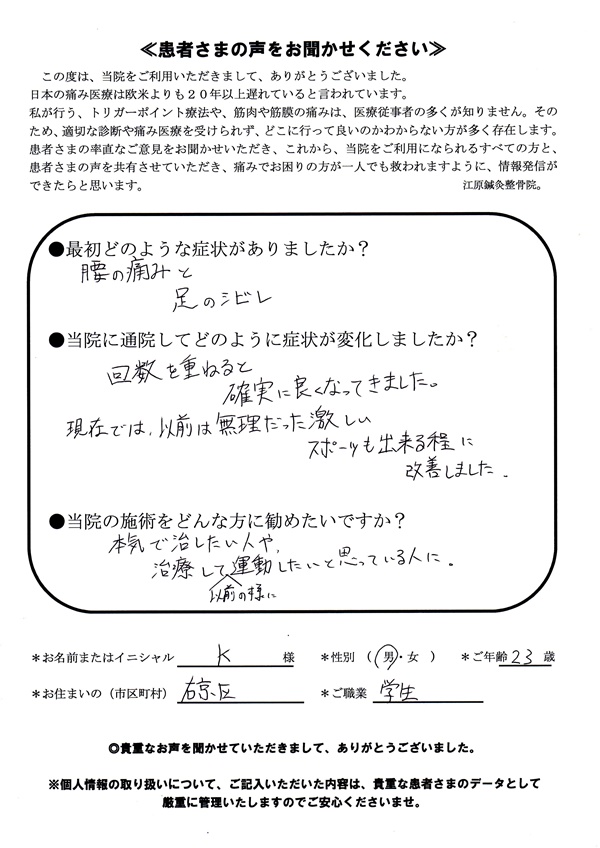 ≪患者さまの声をお聞かせください≫
この度は、当院をご利用いただきまして、ありがとうございました。
日本の痛み医療は欧米よりも２０年以上遅れていると言われています。
私が行う、トリガーポイント療法や、筋肉や筋膜の痛みは、医療従事者の多くが知りません。その
ため、適切な診断や痛み医療を受けられず、どこに行って良いのかわからない方が多く存在します。
患者さまの率直なご意見をお聞かせいただき、これから、当院をご利用になられるすべての方と、
患者さまの声を共有させていただき、痛みでお困りの方が一人でも救われますように、情報発信が
できたらと思います。 江原鍼灸整骨院。
●最初どのような症状がありましたか？
腰の痛みと
足のシビレ
●当院に通院してどのように症状が変化しましたか？
回数を重ねると
確実に良くなってきました。
現在では、以前は無理だった激しい
スポーツも出来る程に
改善しました.
●当院の施術をどんな方に勧めたいですか？
本気で治したい人や,
治療して運動したいと思っている人に。
以前の様に
＊お名前またはイニシャル K 様 ＊性別（ 男・女 ） ＊ご年齢 23 歳
＊お住まいの（市区町村） 右京区 ＊ご職業 学生
◎貴重なお声を聞かせていただきまして、ありがとうございました。
※個人情報の取り扱いについて、ご記入いただいた内容は、貴重な患者さまのデータとして
厳重に管理いたしますのでご安心くださいませ。